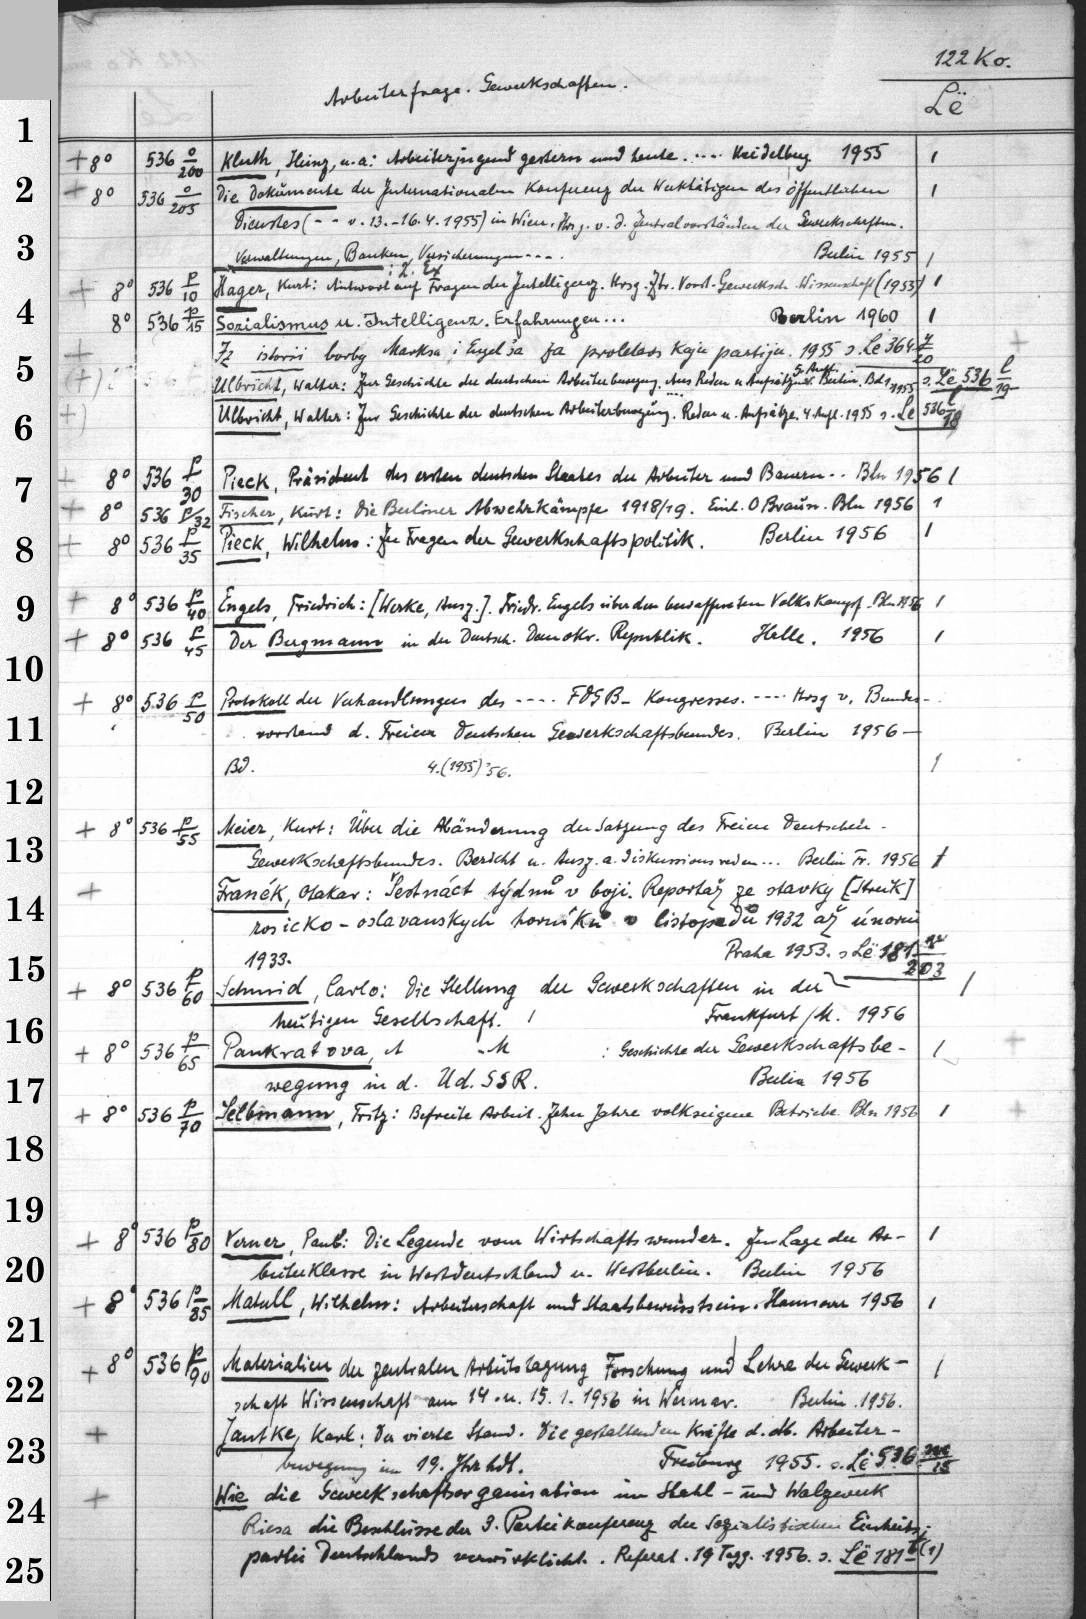 122 Ko.
Arbeiterfrage. Gewerkschaften.
Lë
1
+ 8° 536 o/200 Kluth, Heinz, u.a: Arbeiterjugend gestern und heute. .... Heidelberg 1955 1
2
+ 8° 536 o/205 Die Dokumente der Internationalen Konferenz der Werktätigen des öffentlichen 1
Dienstes (- - v. 13.-16.4.1955) in Wien. Hrsg. v. d. Zentralvorständen der Gewerkschaften.
3
Verwaltungen, Banken, Versicherungen ---. Berlin 1955 1
i 2. Ex
+ 8° 536 p/10 Hager, Kurt: Antwort auf Fragen der Intelligenz. Hrsg. Ztr. Vorst. Gewerksch. Wissenschaft (1955) 1
4
8° 536 p/15 Sozialismus u. Intelligenz. Erfahrungen... Berlin 1960 1
+ Iz istorii borby Marksa i Engel'sa za proletarskaju partiju. 1955 s. Lë 364 z/20
5
(+) Ulbricht, Walter: Zur Geschichte der deutschen Arbeiterbewegung. Aus Reden u. Aufsätzen. 5. Aufl. Berlin. Bd 1 1955 s. Lë 536 l/19
6
+) Ulbricht, Walter: Zur Geschichte der deutschen Arbeiterbewegung. Reden u. Aufsätze. 4. Aufl. 1955 s. Lë 536 l/18
7
+ 8° 536 p/30 Pieck, Präsident des ersten deutschen Staates der Arbeiter und Bauern.. Bln 1956 1
+ 8° 536 p/32 Fischer, Kurt: Die Berliner Abwehrkämpfe 1918/19. Einl. O Braun. Bln 1956 1
8
+ 8° 536 p/35 Pieck, Wilhelm: Zu Fragen der Gewerkschaftspolitik. Berlin 1956 1
9
+ 8° 536 p/40 Engels, Friedrich: [Werke, Ausz.]. Friedr. Engels über den bewaffneten Volkskampf. Bln 1956 1
+ 8° 536 p/45 Der Bergmann in der Deutsch. Demokr. Republik. Halle. 1956 1
10
+ 8° 536 p/50 Protokoll der Verhandlungen des ---- FDGB-Kongresses. ---- Hrsg v. Bundes-
11
vorstand d. Freien Deutschen Gewerkschaftsbundes. Berlin 1956 —
Bd. 4.(1955) '56. 1
12
+ 8° 536 p/55 Meier, Kurt: Über die Abänderung der Satzung des Freien Deutschen
13
Gewerkschaftsbundes. Bericht u. Ausz. a. Diskussionsreden... Berlin Tr. 1956 1
+ Franěk, Otakar: Šestnáct týdnů v boji. Reportáž ze stavky [Streik]
14
rosicko-oslavanskych horníků v listopadů 1932 až únoru
1933. Praha 1953. s Lë 181 w/203
15
+ 8° 536 p/60 Schmid, Carlo: Die Stellung der Gewerkschaften in der 1
heutigen Gesellschaft. ! Frankfurt/M. 1956
16
+ 8° 536 p/65 Pankratova, A -M : Geschichte der Gewerkschaftsbe- 1
17
wegung in d. Ud.SSR. Berlin 1956
+ 8° 536 p/70 Selbmann, Fritz: Befreite Arbeit. Zehn Jahre volkseigene Betriebe. Bln 1956 1
18
19
+ 8° 536 p/80 Verner, Paul: Die Legende vom Wirtschaftswunder. Zur Lage der Ar- 1
20
beiterklasse in Westdeutschland u. Westberlin. Berlin 1956
+ 8° 536 p/85 Matull, Wilhelm: Arbeiterschaft und Staatsbewusstsein. Hannover 1956 1
21
+ 8° 536 p/90 Materialien der zentralen Arbeitstagung Forschung und Lehre der Gewerk- 1
22
schaft Wissenschaft am 14. u. 15. 1. 1956 in Weimar. Berlin. 1956.
+ Jantke, Karl: Der vierte Stand. Die gestaltenden Kräfte d. dt. Arbeiter-
23
bewegung im 19. Jhrhdt. Freiburg 1955. s. Lë 536 m/15
+ Wie die Gewerkschaftsorganisation im Stahl- und Walzwerk
24
Riesa die Beschlüsse der 3. Parteikonferenz der Sozialistischen Einheits-
25
partei Deutschlands verwirklicht. Referat. 19 Tagg. 1956. s. Lë 181 (1)